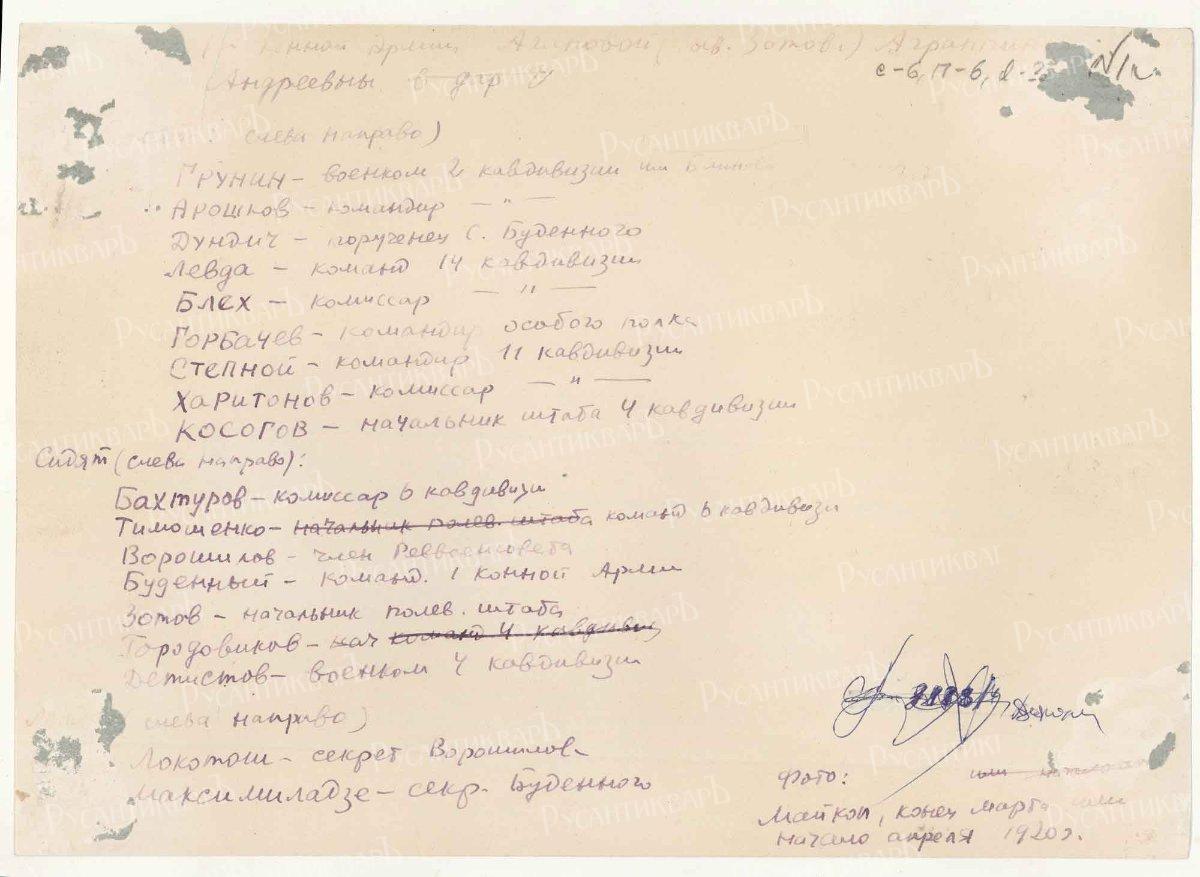 1й Конной Армии Агиповой (ив. Зотов.)
Андреевны в др
с-6, П-6, №1
слева направо)
ГРУНИН – военком 2 кавдивизии им Блинова
АРОШКОВ – командир — " —
ДУНДИЧ – порученец С. Буденного
ЛЕВДА – команд 14 кавдивизии
БЛЕХ – комиссар — " —
ГОРБАЧЕВ – командир особого полка
СТЕПНОЙ – командир 11 кавдивизии
ХАРИТОНОВ – комиссар — " —
КОСОГОВ – начальник штаба 4 кавдивизии
Сидят (слева направо):
Бахтуров – комиссар 6 кавдивизи
Тимошенко – начальник полев. штаба команд 6 кавдивизи
Ворошилов – член Реввоенсовета
Буденный – команд. 1 конной Армии
Зотов – начальник полев. штаба
Городовиков – нач команд 4 кавдивиз
Детистов – военком 4 кавдивизии
(слева направо)
Локотош – секрет Ворошилов
Максимиладзе – секр. Буденного
Фото:
Майкоп, конец марта или
начало апреля 1920 г.
РусАнтикварЪ